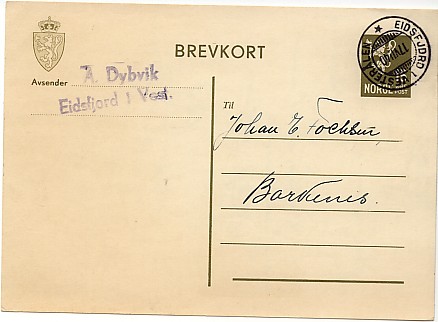 BREVKORT
EIDSFJORD I VESTERÅLEN
NORGE
POST
Avsender
A. Dybvik
Eidsfjord i Vest.
Til
Johan E.